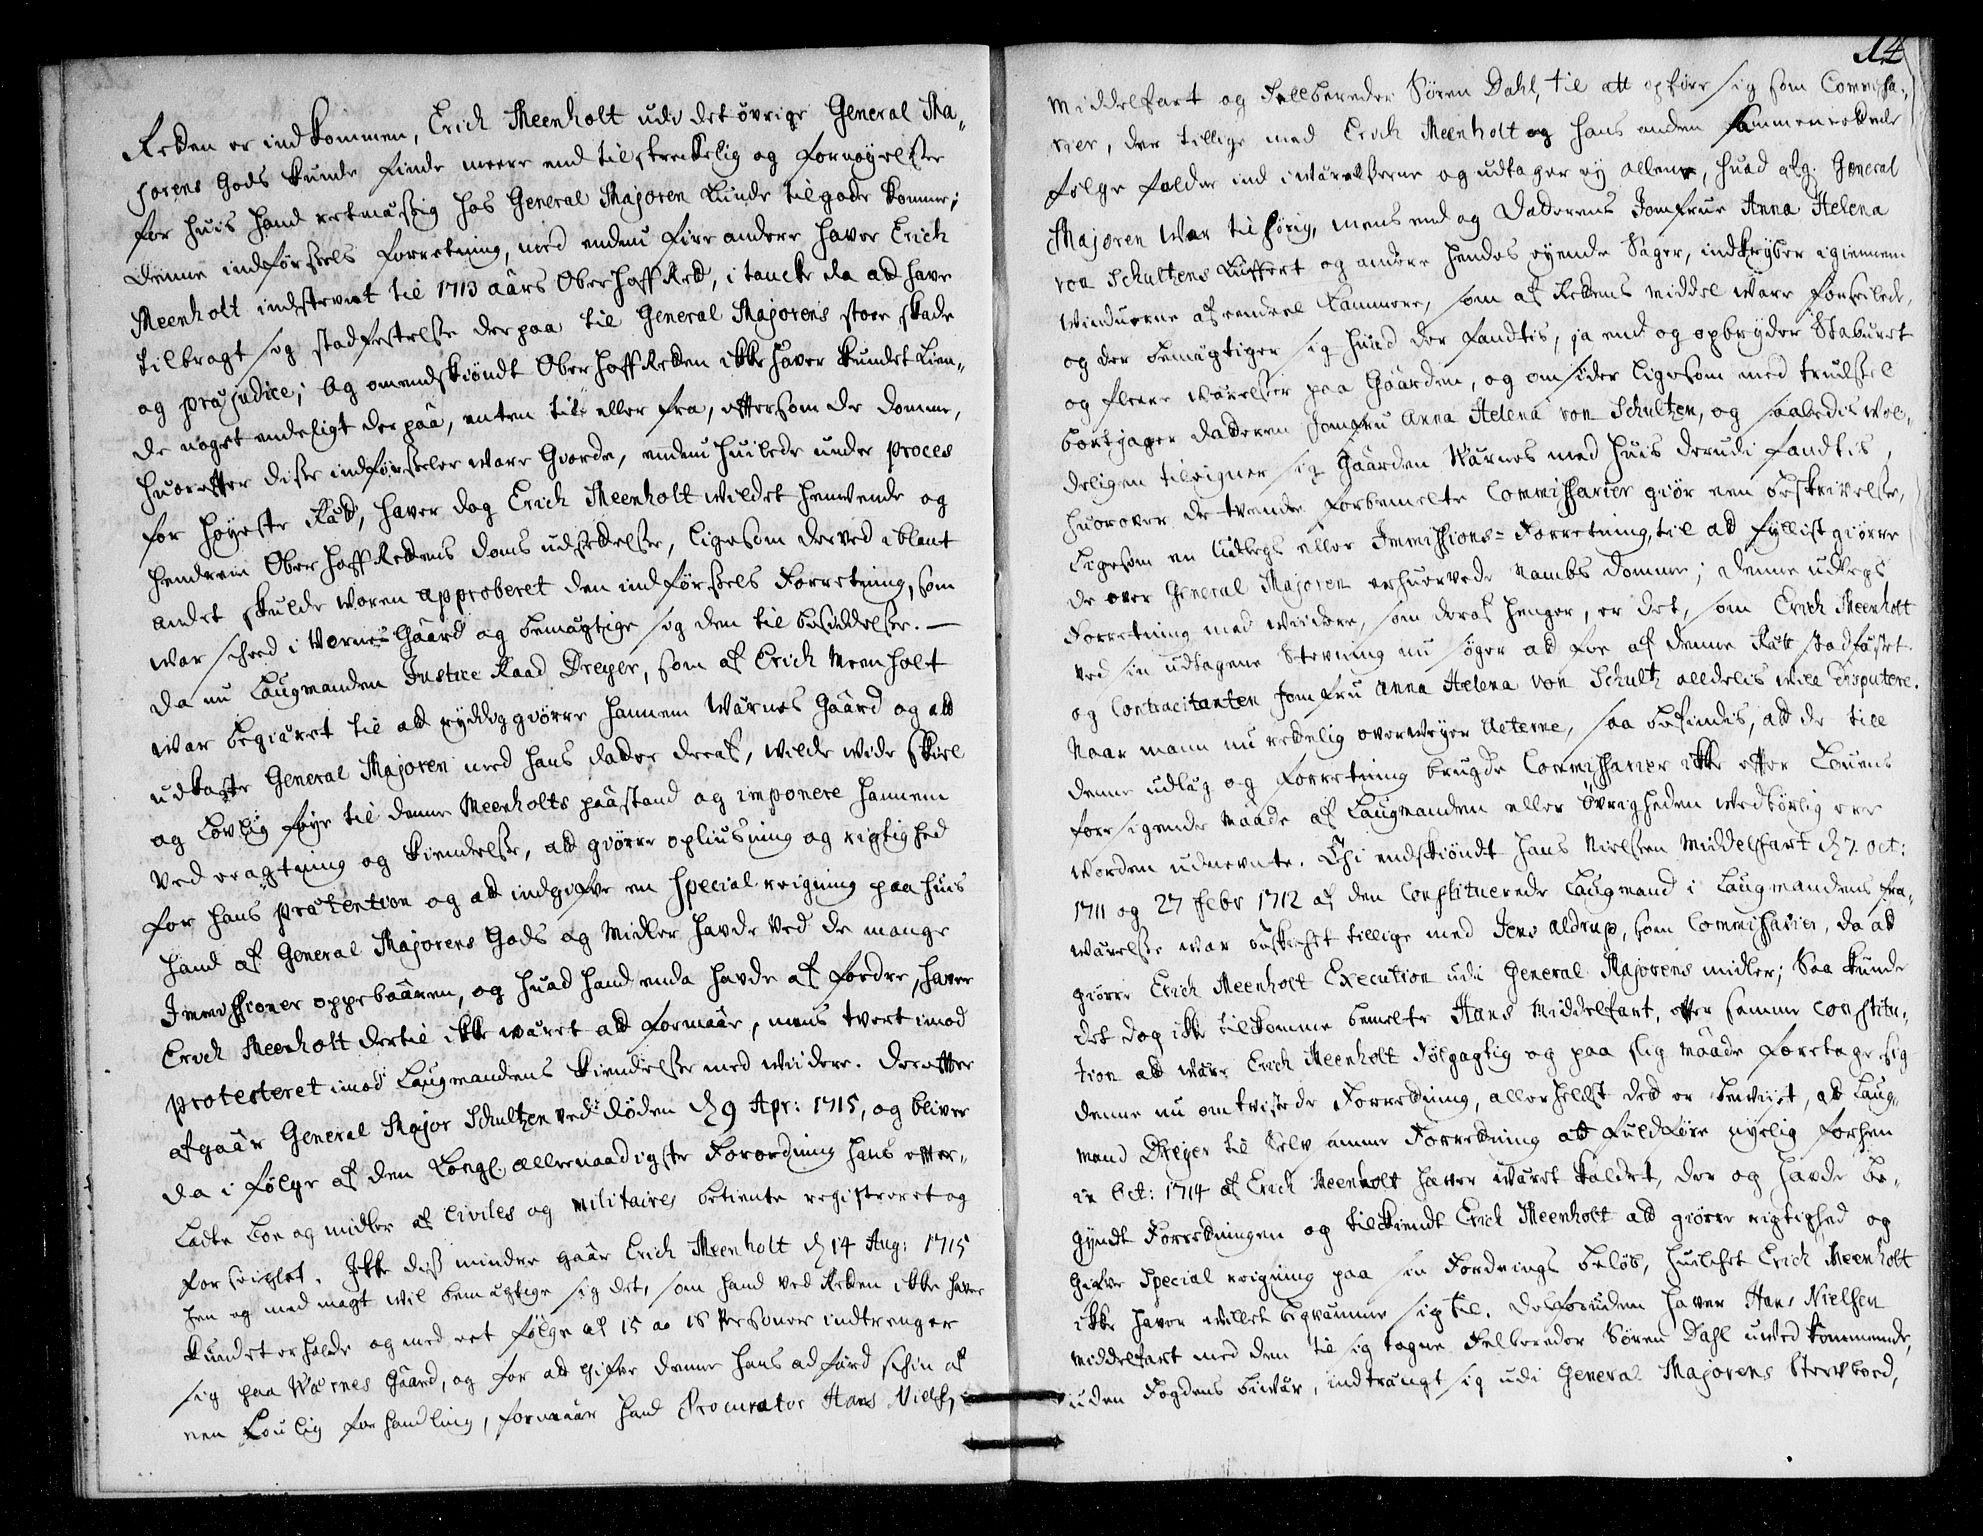 Retten er indkommen, Erich Meenholt udi det øvrige General Ma-
jorens Gods kunde finde meere end tilstreckelig og fornøyelsse
for huis hand retmæssig hos General Majoren kunde tilgode komme;
denne indførssels forretning, med endnu fire andere haver Erich
Meenholt indstevnet til 1713 aars Ober Hoff Rett, i tancke da att have
tilbragt sig stadfestelsse derpaa til General Majorens store skade
og præjudice; Og omendskiøndt Ober Hoff Retten icke haver kundet kien-
de noget endeligt derpaa, enten til eller fra, effterssom de Domme,
huoreffter disse indførsseler ware Giorde, endnu huilede under proces
for høyeste Rætt, haver dog Erich Meenholt wildet henvende og
hendreie Ober Hoff Rettens doms udstædelsse, ligesom derved iblant
andet skulde woren approberet den indførssels Forretning, som
war scheed i Wernes Gaard og bemægtige sig den til besiddelsse. —
Da nu Laugmanden Justice Raad Dreyer, som af Erich Meenholt
war begiæret til att ryddiggiørre hannem Wærnes Gaard og att
udkaste General Majoren med hans datter deraf, wilde wide skiel
og lovlig føye til denne Meenholts paastand og imponere hannem
ved eragtning og kiendelsse, att giørre opliusning og rigtighed
for hans prætention og att indgifve en special reigning paa huis
hand af General Majorens Gods og Midler havde ved de mange
Immissioner oppebaaren, og huad hand enda havde at fordre, haver
Erich Meenholt dertil icke wæret att formaae, mens tvert imod
protesteret imod Laugmandens kiendelsse med widere. Dereffter
afgaar General Major Schultzen ved døden d. 9 Apr: 1715, og bliver
da i følge af den Kongl. allernaadigste Forordning hans effter-
ladte boe og midler af Civiles og Militaires betiente registreret og
forseiglet. Icke diss mindre gaar Erich Meenholt d. 14 Aug: 1715
hen og med magt wil bemægtige sig det, som hand ved Retten icke haver
kundet erholde og med eet følge af 15 a 16 Personer indtrenger
sig paa Wærnes Gaard, og for att gifve denne hans adfærd schin af
een Loulig forhandling, formaar hand Procurator Hans Nielss.
14
Middelfart og Feltbereder Søren Dahl, til att opføre sig som Commissa-
rier, der tillige med Erich Meenholt og hans anden sammenrottede
følge falder ind i wærelsserne og udtager ey allene, huad afg. General
Majoren war tilhørig, mens end og Datterens Jomfrue Anna Helena
von Schultzens Kuffert og andre hendes eyende Sager, indkryber igiennem
winduerne af eendeel Kammere, som af Rettens middel ware forseilede,
og der bemægtiger sig huad der fandtis, ja end og opbryder Staburet
og fleere wærelsser paa Gaarden, og omsider ligesom med trudssel
bortjager datteren Jomfru Anna Helena von Schultzen, og saaledis wol-
deligen tileigner sig Gaarden Wærnes med huis derudi fandtis,
huorover de tvende forbemelte Commissarier giør een beskrivelsse,
ligesom en Udlegs eller Immissions-Forretning, til att fyllistgiørre
de over General Majoren erhuervede Nambs domme; denne udlegs
Forretning med widere, som deraf henger, er det, som Erich Meenholt
ved sin udtagene Stevning nu søger att foe af denne Rætt stadfæstet
og Contracitanten Jomfru Anna Helena von Schultz alldelis will disputere.
Naar mann nu rettelig overweyer Acterne, saa befindis, att de till
denne udlæg og forretning brugde Commissarier icke effter Louens
foresigende maade af Laugmanden eller øvrigheden wedbørlig ere
worden udnevnte. Thi endskiøndt Hans Nielssen Middelfart d. 7. Oct:
1711 og 27 Febr 1712 af den Constituerede Laugmand i Laugmandens fra-
wærelsse war beskicket tillige med Jens Aldrup, som Commissarier, da att
giørre Erich Meenholt Execution udi General Majorens midler; Saa kunde
det dog icke tilkomme bemelte Hans Middelfart, effter samme Constitu-
tion att wære Erich Meenholt følgagtig og paa slig maade foretage sig
denne nu omtvistede Forretning, allerhelst det er beviist, att Laug-
mand Dreyer til selv samme Forretning att fuldføre nyelig forhen
in Oct: 1714 af Erich Meenholt haver wæret kaldet, der og havde be-
gyndt Forretningen og tilkiendt Erich Meenholt att giørre rigtighed og
gifve Special reigning paa sin Fordrings beløb, huilchet Erich Meenholt
icke haver willet beqvæmme sig til. Desforuden haver Hans Nielssen
Middelfart med den til sig tagne Feltbereder Søren Dahl uvedkommende,
uden Fogdens biwær, indtrængt sig udi General Majorens Sterbboed,